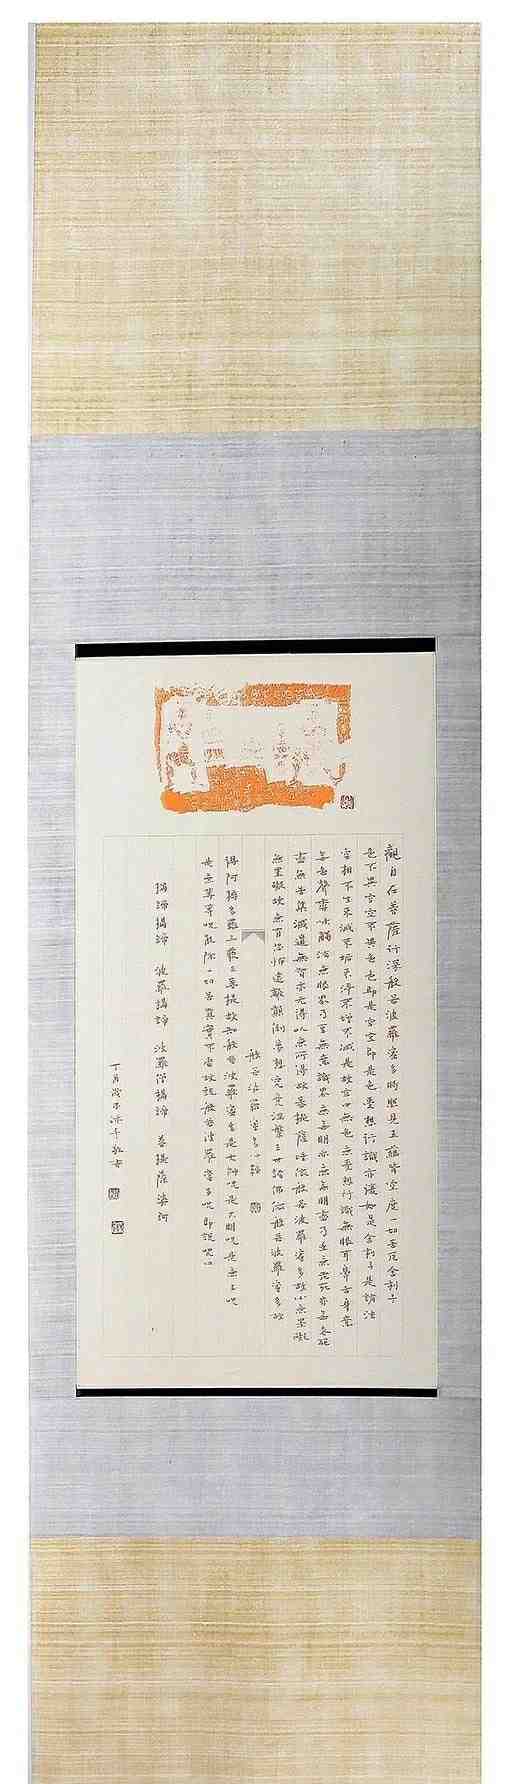 觀自在菩薩行深般若波羅蜜多時照見五蘊皆空度一切苦厄舍利子
色不異空空不異色色即是空空即是色受想行識亦復如是舍利子是諸法
空相不生不滅不垢不淨不增不減是故空中無色無受想行識無眼耳鼻舌身意
無色聲香味觸法無眼界乃至無意識界無無明亦無無明盡乃至無老死亦無老死
盡無苦集滅道無智亦無得以無所得故菩提薩埵依般若波羅蜜多故心無罣礙
無罣礙故無有恐怖遠離顛倒夢想究竟涅槃三世諸佛依般若波羅蜜多故
般若波羅蜜多心經
得阿耨多羅三藐三菩提故知般若波羅蜜多是大神咒是大明咒是無上咒
是無等等咒能除一切苦真實不虛故說般若波羅蜜多咒即說咒曰
揭諦揭諦 波羅揭諦 波羅僧揭諦 菩提薩婆訶